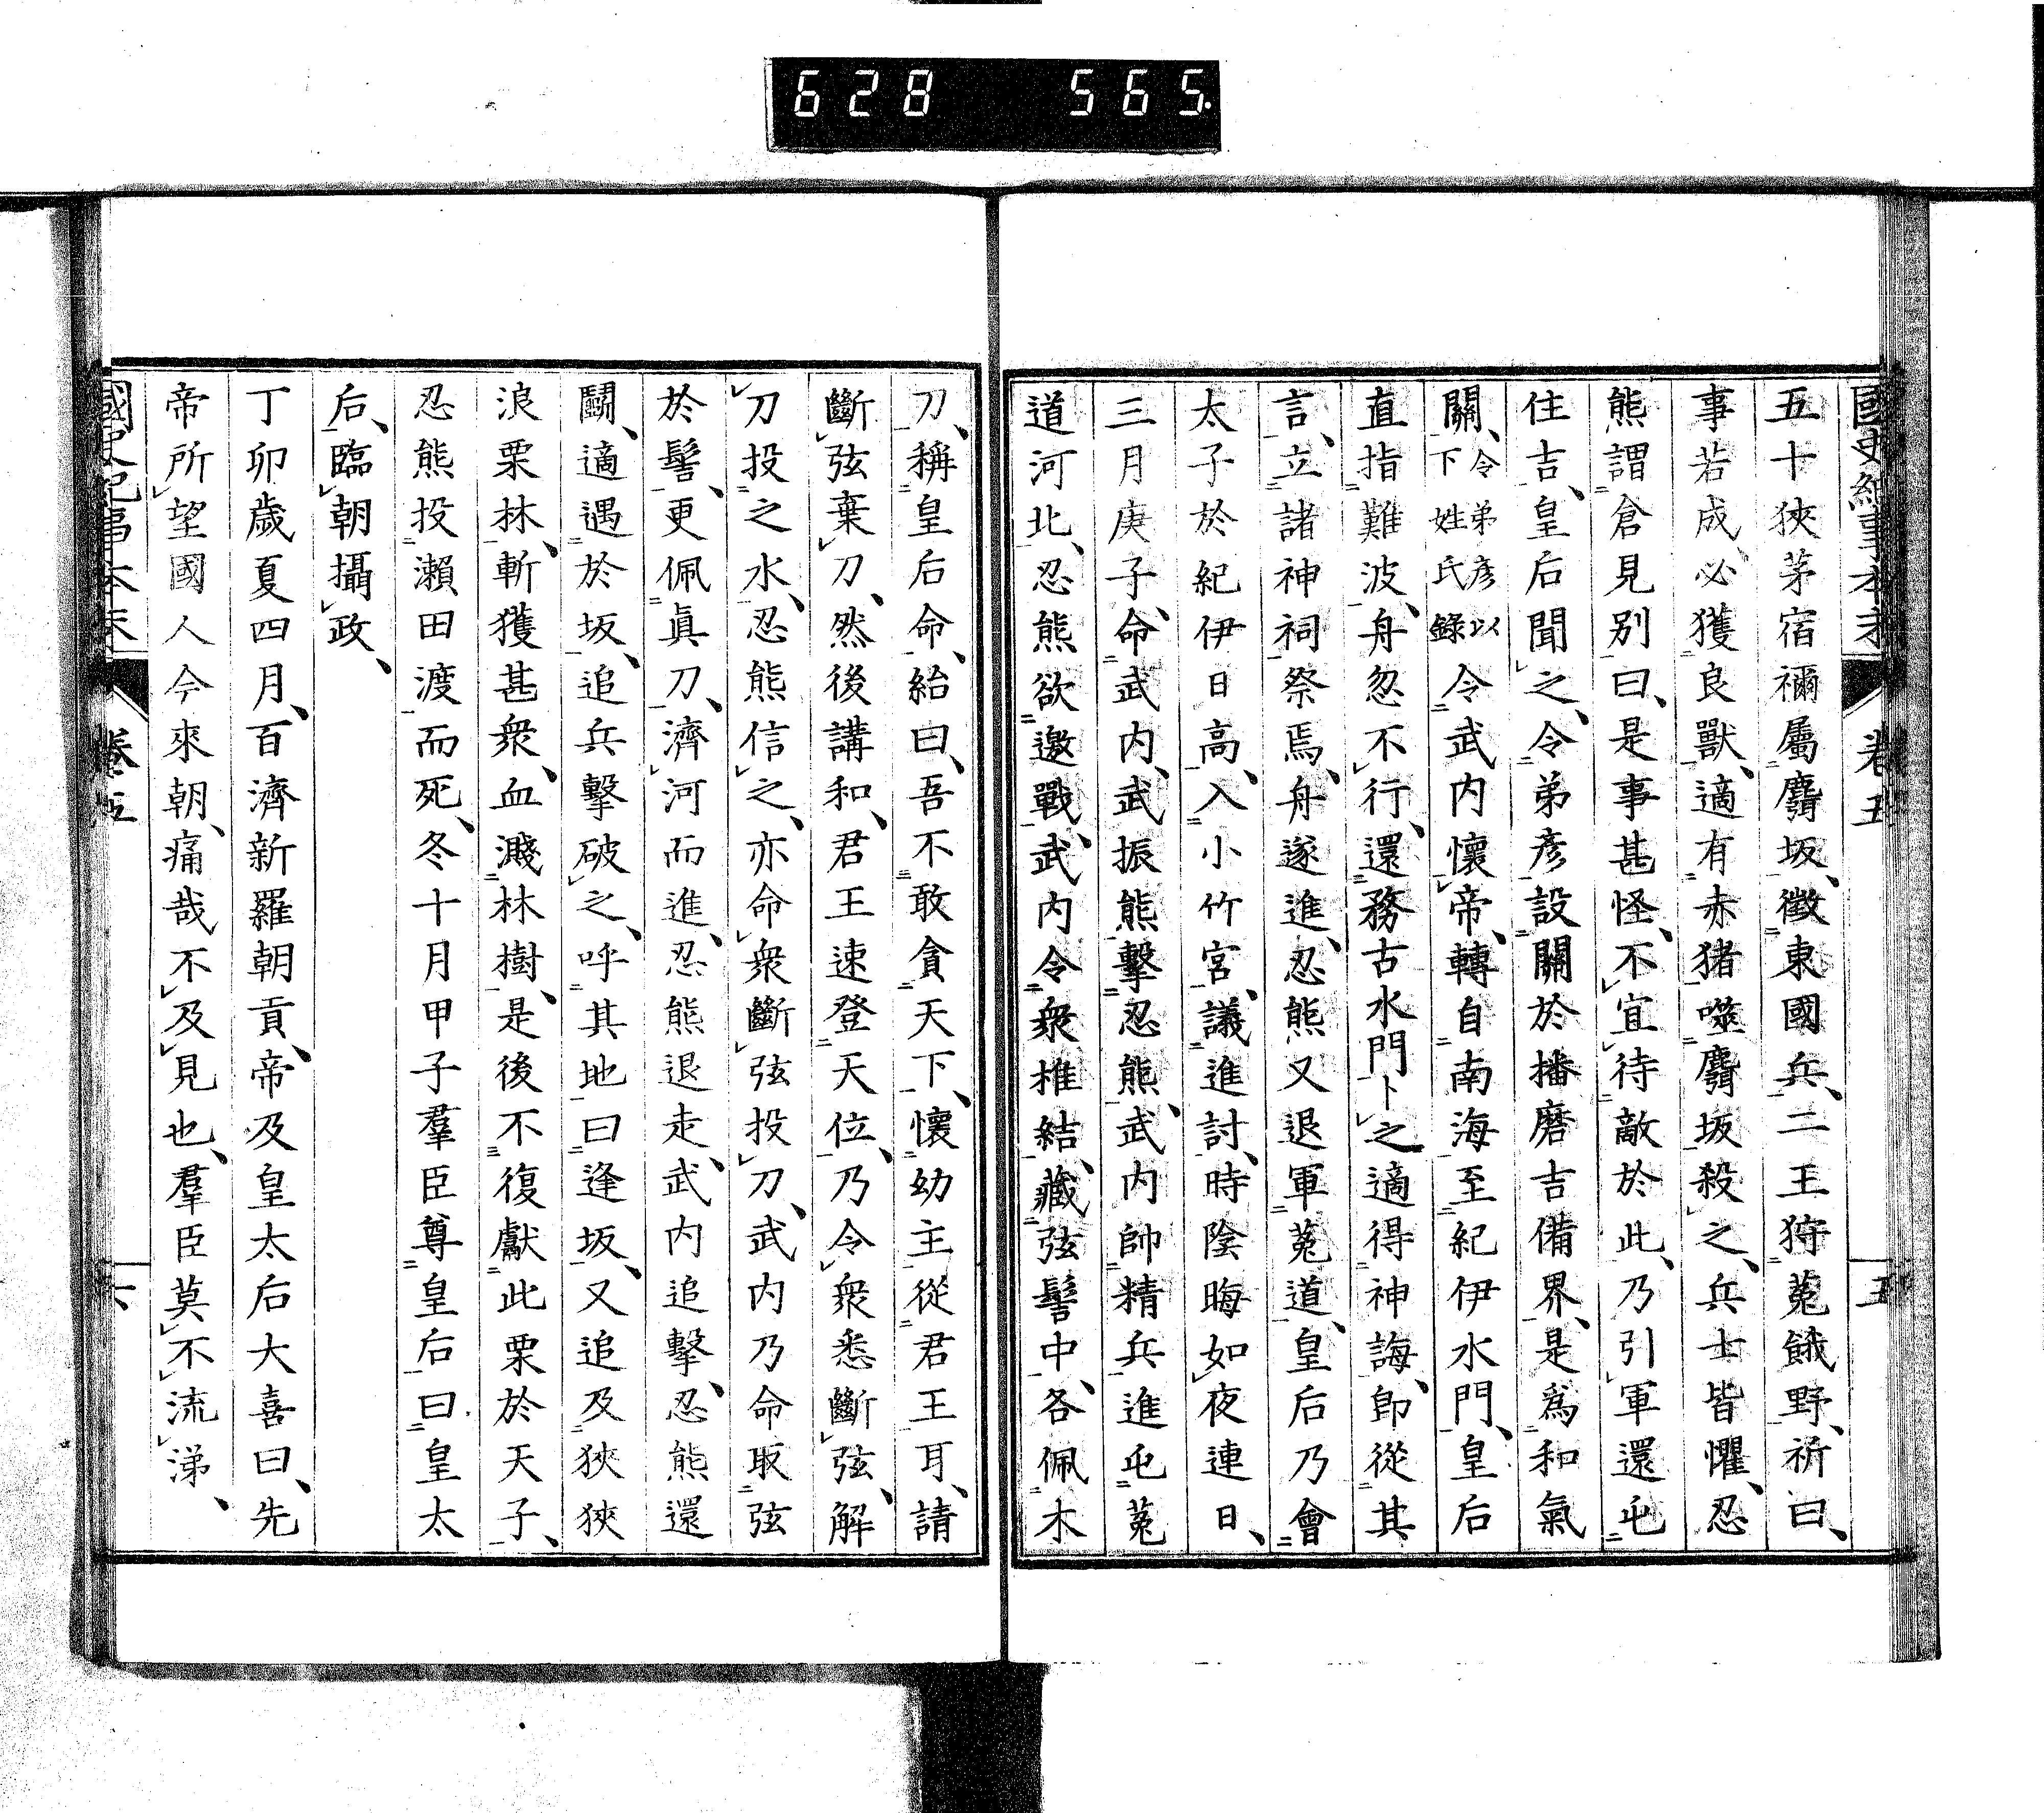 628 565.
國史紀事本末 卷五 五
五十狹茅宿禰屬麛坂、徵東國兵、二王狩菟餓野、祈曰、
事若成、必獲良獸、適有赤猪噬麛坂殺之、兵士皆懼、忍
熊謂倉見別曰、是事甚怪、不宜待敵於此、乃引軍還屯
住吉、皇后聞之、令弟彥設關於播磨吉備界、是爲和氣
關、令弟彥以下姓氏錄令武內懷帝、轉自南海至紀伊水門、皇后
直指難波、舟忽不行、還務古水門卜之適得神誨、卽從其
言、立諸神祠祭焉、舟遂進、忍熊又退軍菟道、皇后乃會
太子於紀伊日高、入小竹宮、議進討、時陰晦如夜連日、
三月庚子、命武內、武振熊擊忍熊、武內帥精兵進屯菟
道河北、忍熊欲邀戰、武內令衆椎結、藏弦髻中、各佩木
刀、稱皇后命、紿曰、吾不敢貪天下、懷幼主從君王耳、請
斷弦棄刀、然後講和、君王速登天位、乃令衆悉斷弦、解
刀投之水、忍熊信之、亦命衆斷弦投刀、武內乃命取弦
於髻、更佩眞刀、濟河而進、忍熊退走、武內追擊、忍熊還
鬪、適遇於坂、追兵擊破之、呼其地曰逢坂、又追及狹狹
浪栗林、斬獲甚衆、血濺林樹、是後不復獻此栗於天子、
忍熊投瀨田渡而死、冬十月甲子羣臣尊皇后曰皇太
后、臨朝攝政、
丁卯歲夏四月、百濟新羅朝貢、帝及皇太后大喜曰、先
帝所望國人今來朝、痛哉不及見也、羣臣莫不流涕、
國史紀事本末 卷五 六